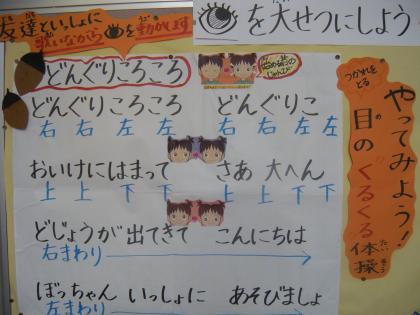 友達といっしょに
歌いながら を動かします
を大せつにしよう
どんぐりころころ
どんぐりころころ どんぐりこ
右 右 左 左 右 右 左 左
おいけにはまって さあ 大へん
上 上 下 下 上 上 下 下
どじょうが 出てきて こんにちは
右まわり
ぼっちゃん いっしょに あそびましょ
左まわり
やってみよう!
つかれをとる
目のくるくる体操